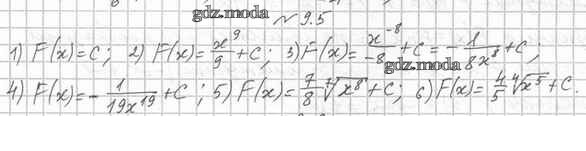 gdz.moda
№ 9.5
1) F(x)=C; 2) F(x)= x^9/9 +C; 3) F(x)= x^-8/-8 +C = - 1/8x^8 +C;
gdz.moda
4) F(x)= - 1/19x^19 +C; 5) F(x)= 7/8 ⁷√x^8 +C; 6) F(x)= 4/5 ⁴√x^5 +C.